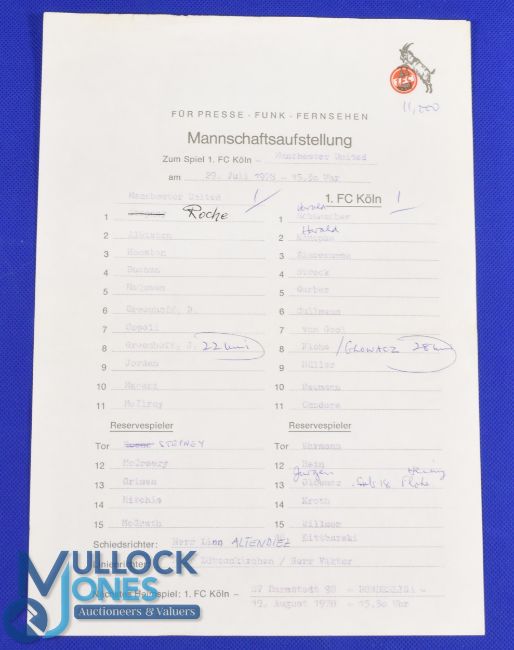 1.FC
11,000
FÜR PRESSE - FUNK - FERNSEHEN
Mannschaftsaufstellung
Zum Spiel 1. FC Köln - Manchester United
am 29. Juli 1978 - 15.30 Uhr
Manchester United 1 1. FC Köln 1
1 Roche 1 Harald Schumacher
2 Albiston 2 Herald Konopka
3 Houston 3
4 Buchan 4 Strack
5 5 Gerber
6 Greenhoff, B. 6 Cullmann
7 Coppell 7 van Gool
8 Greenhoff, J. 22 min 8 Flohe / GLOWACZ 28 min
9 Jordan 9 Müller
10 Macari 10 Neumann
11 McIlroy 11
Reservespieler Reservespieler
Tor Roche STEPNEY Tor Ehrmann
12 McCreery 12 Hein
13 Grimes 13 Jurgen Glowacz Sub 18 Flohe
14 Ritchie 14 Kroth
15 McGrath 15 Willmer
Littbarski
Schiedsrichter: Herr Linn ALTENDIEZ
Linienrichter: / Herr
Nächstes Heimspiel: 1. FC Köln - SV Darmstadt 98 - BUNDESLIGA -
19. August 1978 - 15.30 Uhr
MULLOCK
JONES
Auctioneers & Valuers